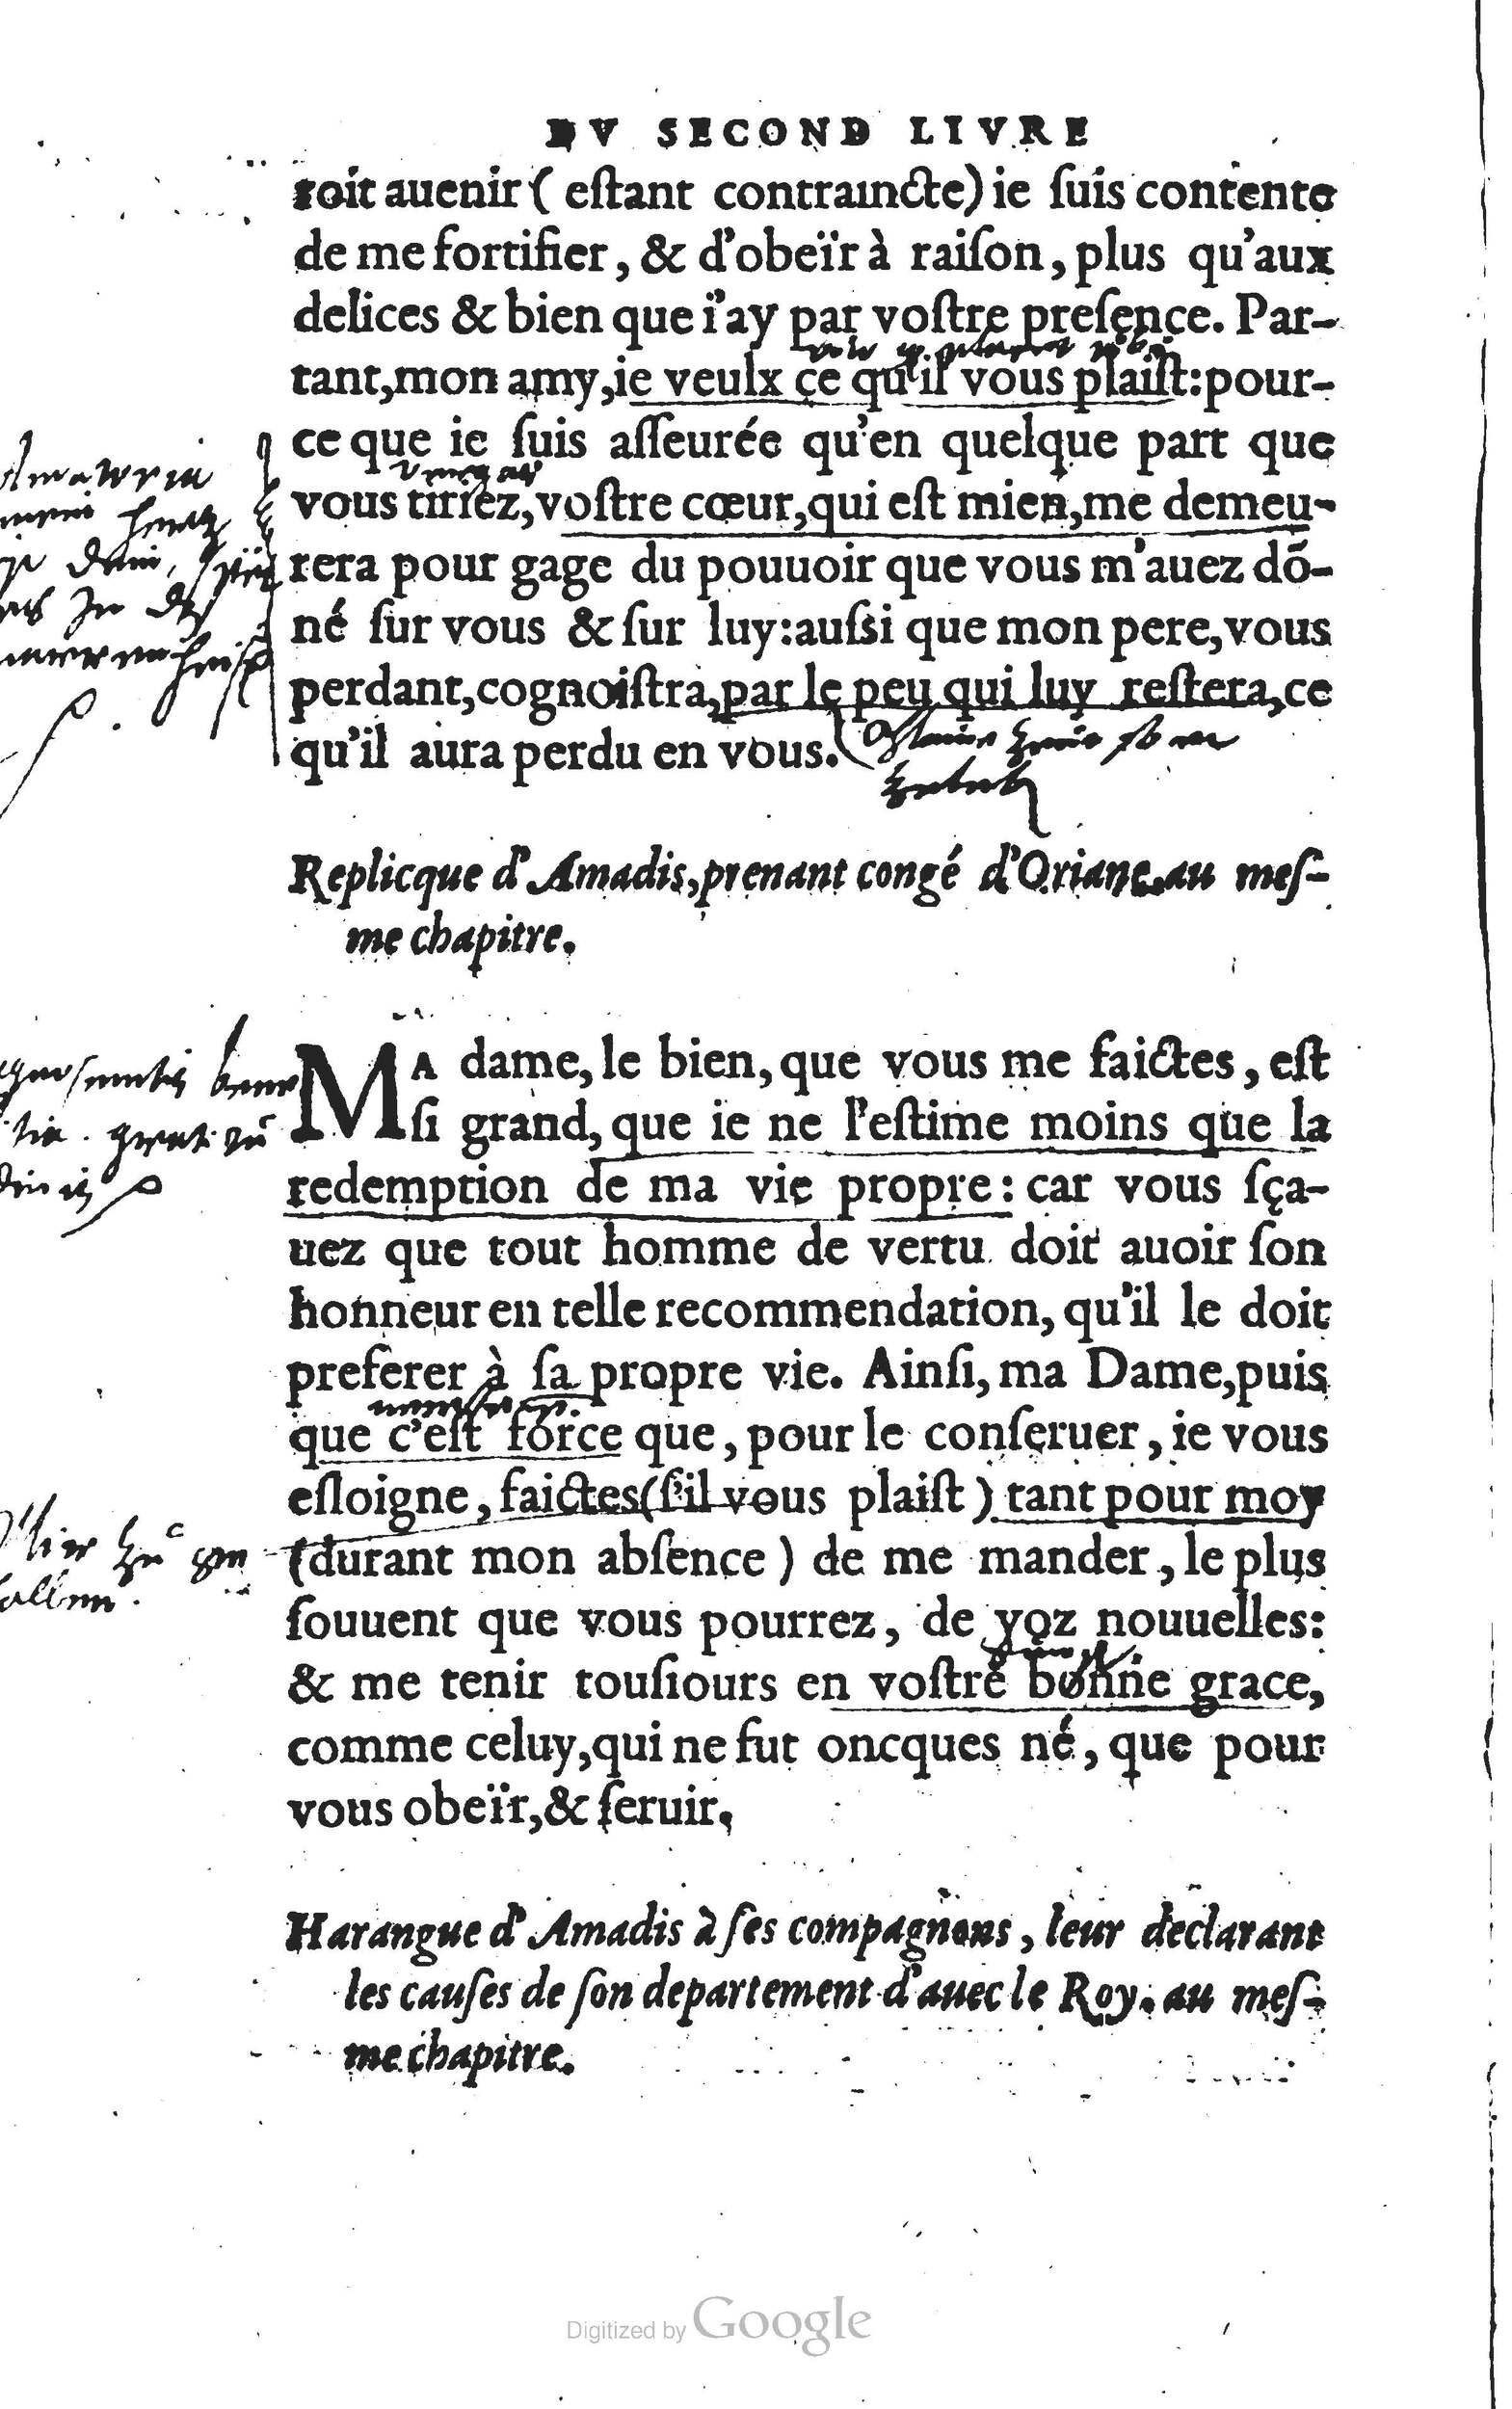 DV SECOND LIVRE
roit auenir ( eſtant contraincte) ie ſuis contente
de me fortifier, & d'obeïr à raiſon, plus qu'aux
delices & bien que i'ay par voſtre preſence. Par-
tant, mon amy, ie veulx ce qu'il vous plaiſt: pour-
ce que ie ſuis aſſeurée qu'en quelque part que
vous tiriez, voſtre cœur, qui eſt mien, me demeu-
rera pour gage du pouuoir que vous m'auez dõ-
né ſur vous & ſur luy: auſsi que mon pere, vous
perdant, cognoiſtra, par le peu qui luy reſtera, ce
qu'il aura perdu en vous.
Replicque d'Amadis, prenant congé d'Oriane. au meſ-
me chapitre.
MA dame, le bien, que vous me faictes, eſt
ſi grand, que ie ne l'eſtime moins que la
redemption de ma vie propre: car vous ſça-
uez que tout homme de vertu doit auoir ſon
honneur en telle recommendation, qu'il le doit
preferer à ſa propre vie. Ainſi, ma Dame, puis
que c'eſt force que, pour le conſeruer, ie vous
eſloigne, faictes (ſ'il vous plaiſt) tant pour moy
(durant mon abſence) de me mander, le plus
ſouuent que vous pourrez, de voz nouuelles:
& me tenir touſiours en voſtre bonne grace,
comme celuy, qui ne fut oncques né, que pour
vous obeïr, & ſeruir.
Harangue d'Amadis à ſes compagnons, leur declarant
les cauſes de ſon departement d'auec le Roy. au meſ-
me chapitre.
Digitized by Google